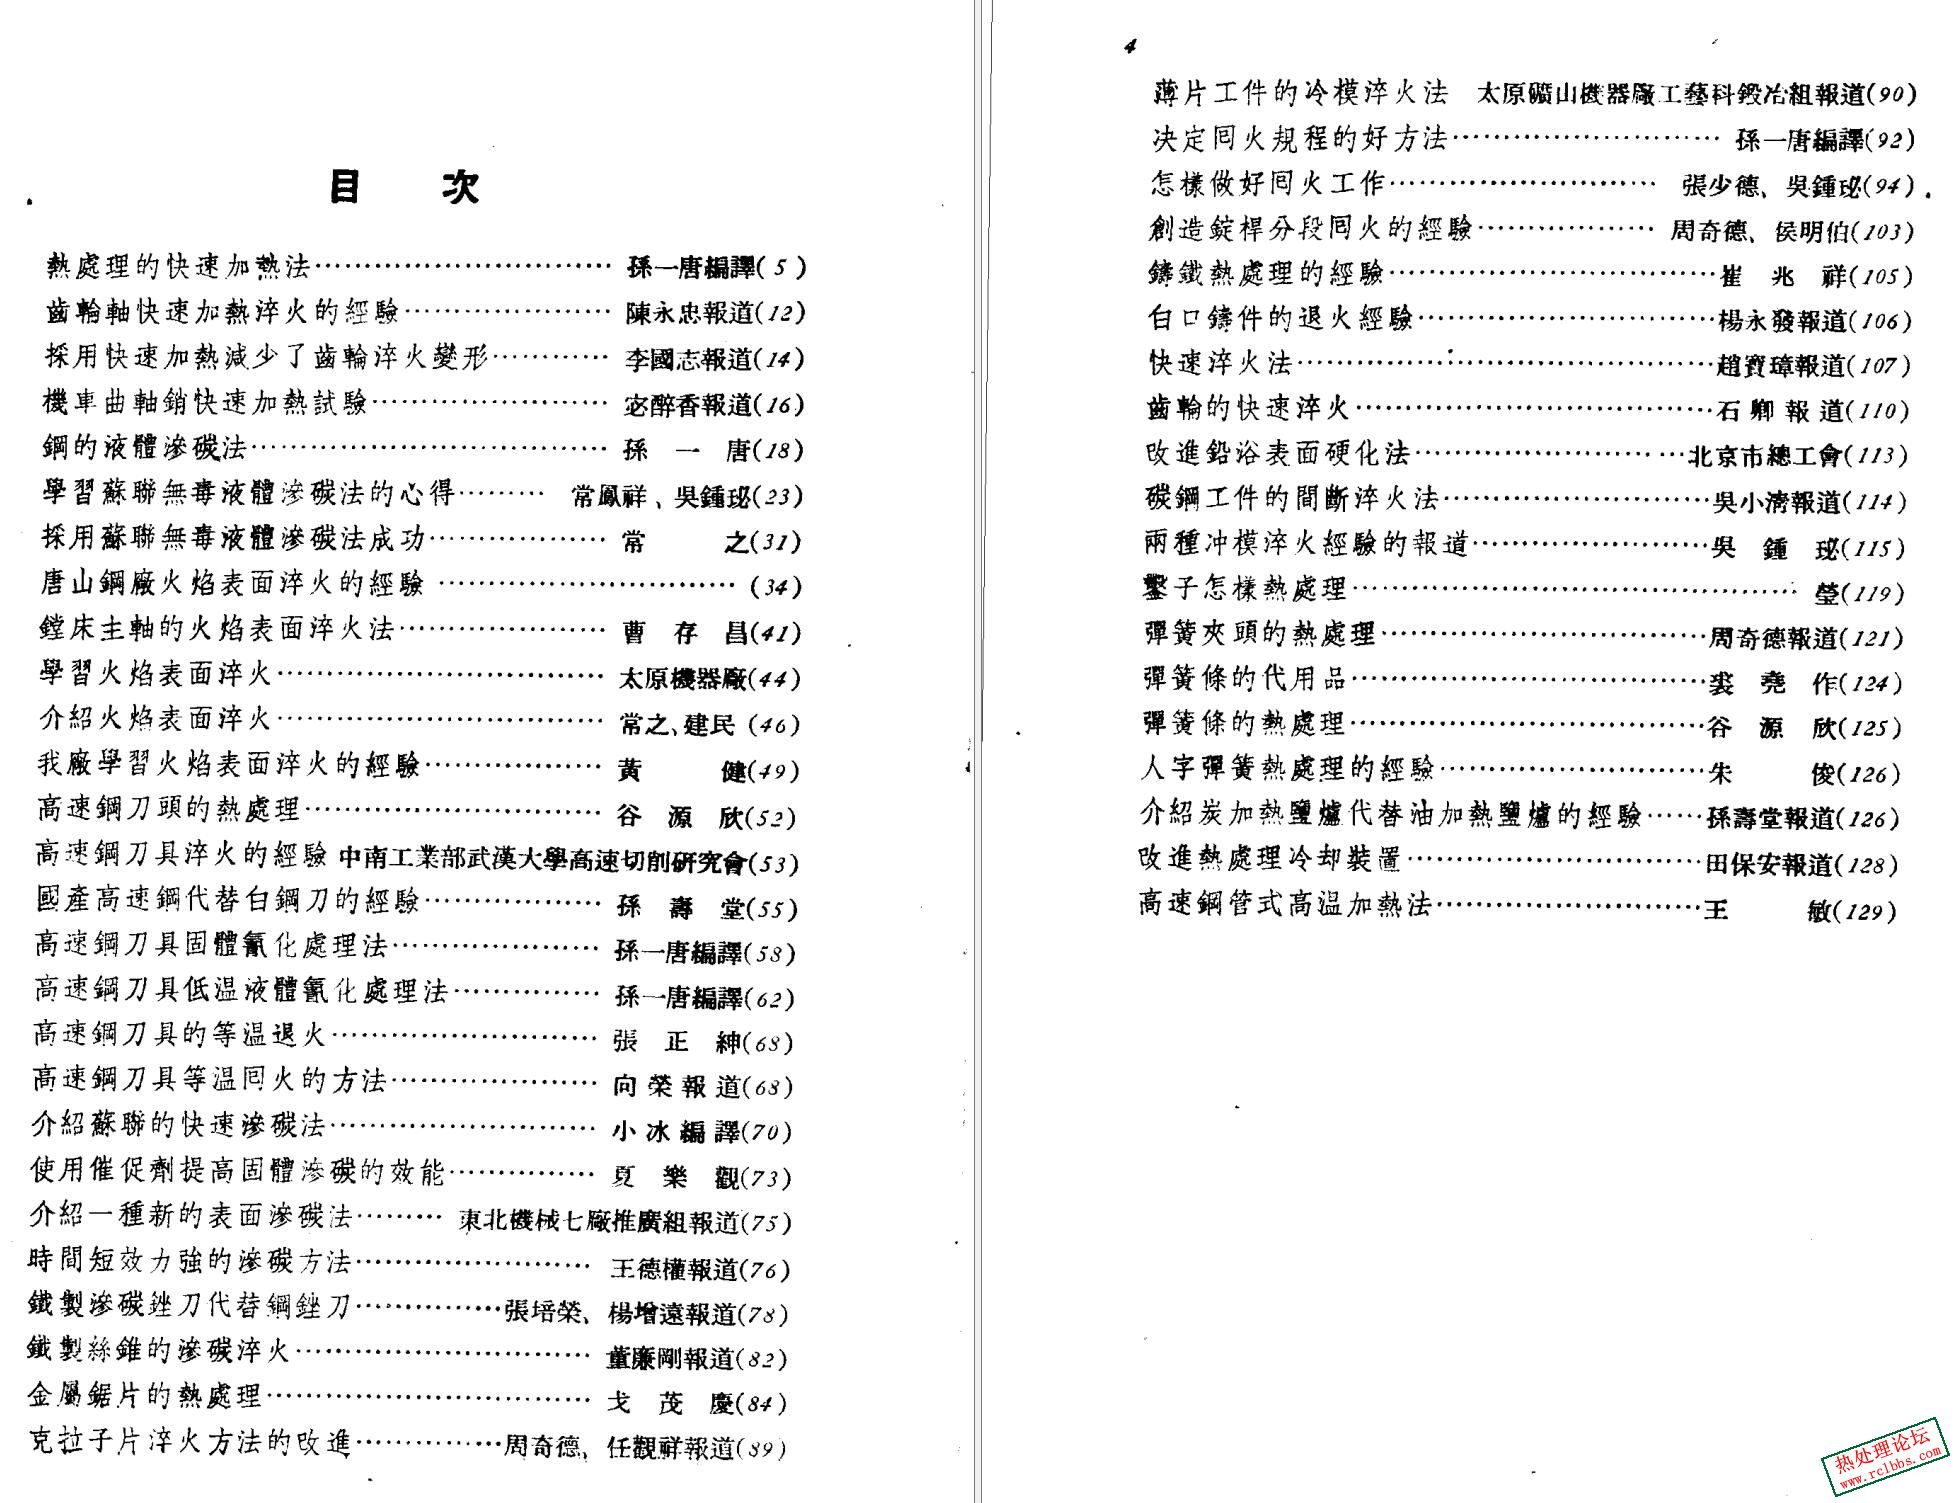 目　次
熱處理的快速加熱法…………………………孫一唐編譯(5)
齒輪軸快速加熱淬火的經驗…………………陳永忠報道(12)
採用快速加熱減少了齒輪淬火變形…………李國志報道(14)
機車曲軸銷快速加熱試驗……………………宓醉香報道(16)
鋼的液體滲碳法………………………………孫一唐(18)
學習蘇聯無毒液體滲碳法的心得………常鳳祥、吳鍾珌(23)
採用蘇聯無毒液體滲碳法成功………………常之(31)
唐山鋼廠火焰表面淬火的經驗…………………………(34)
鏜床主軸的火焰表面淬火法…………………曹存昌(41)
學習火焰表面淬火……………………………太原機器廠(44)
介紹火焰表面淬火……………………………常之、建民(46)
我廠學習火焰表面淬火的經驗………………黃健(49)
高速鋼刀頭的熱處理…………………………谷源欣(52)
高速鋼刀具淬火的經驗 中南工業部武漢大學高速切削研究會(53)
國產高速鋼代替白鋼刀的經驗………………孫壽堂(55)
高速鋼刀具固體氰化處理法…………………孫一唐編譯(58)
高速鋼刀具低温液體氰化處理法……………孫一唐編譯(62)
高速鋼刀具的等温退火………………………張正紳(68)
高速鋼刀具等温囘火的方法…………………向榮報道(68)
介紹蘇聯的快速滲碳法………………………小冰編譯(70)
使用催促劑提高固體滲碳的效能……………夏樂觀(73)
介紹一種新的表面滲碳法………東北機械七廠推廣組報道(75)
時間短效力強的滲碳方法……………………王德權報道(76)
鐵製滲碳銼刀代替鋼銼刀……………張培榮、楊增遠報道(78)
鐵製絲錐的滲碳淬火…………………………董廉剛報道(82)
金屬鋸片的熱處理……………………………戈茂慶(84)
克拉子片淬火方法的改進……………周奇德、任觀祥報道(89)
4
薄片工件的冷模淬火法 太原礦山機器廠工藝科鍛冶組報道(90)
决定囘火規程的好方法………………………孫一唐編譯(92)
怎樣做好囘火工作………………………張少德、吳鍾珌(94)
創造錠桿分段囘火的經驗………………周奇德、侯明伯(103)
鑄鐵熱處理的經驗……………………………崔兆祥(105)
白口鑄件的退火經驗…………………………楊永發報道(106)
快速淬火法……………………………………趙寶璋報道(107)
齒輪的快速淬火………………………………石卿報道(110)
改進鉛浴表面硬化法…………………………北京市總工會(113)
碳鋼工件的間斷淬火法………………………吳小濟報道(114)
兩種冲模淬火經驗的報道……………………吳鍾珌(115)
鑿子怎樣熱處理………………………………………瑩(119)
彈簧夾頭的熱處理……………………………周奇德報道(121)
彈簧條的代用品………………………………裘堯作(124)
彈簧條的熱處理………………………………谷源欣(125)
人字彈簧熱處理的經驗………………………朱俊(126)
介紹炭加熱鹽爐代替油加熱鹽爐的經驗……孫壽堂報道(126)
改進熱處理冷却裝置…………………………田保安報道(128)
高速鋼管式高温加熱法………………………王敏(129)
热处理论坛
www.rclbbs.com